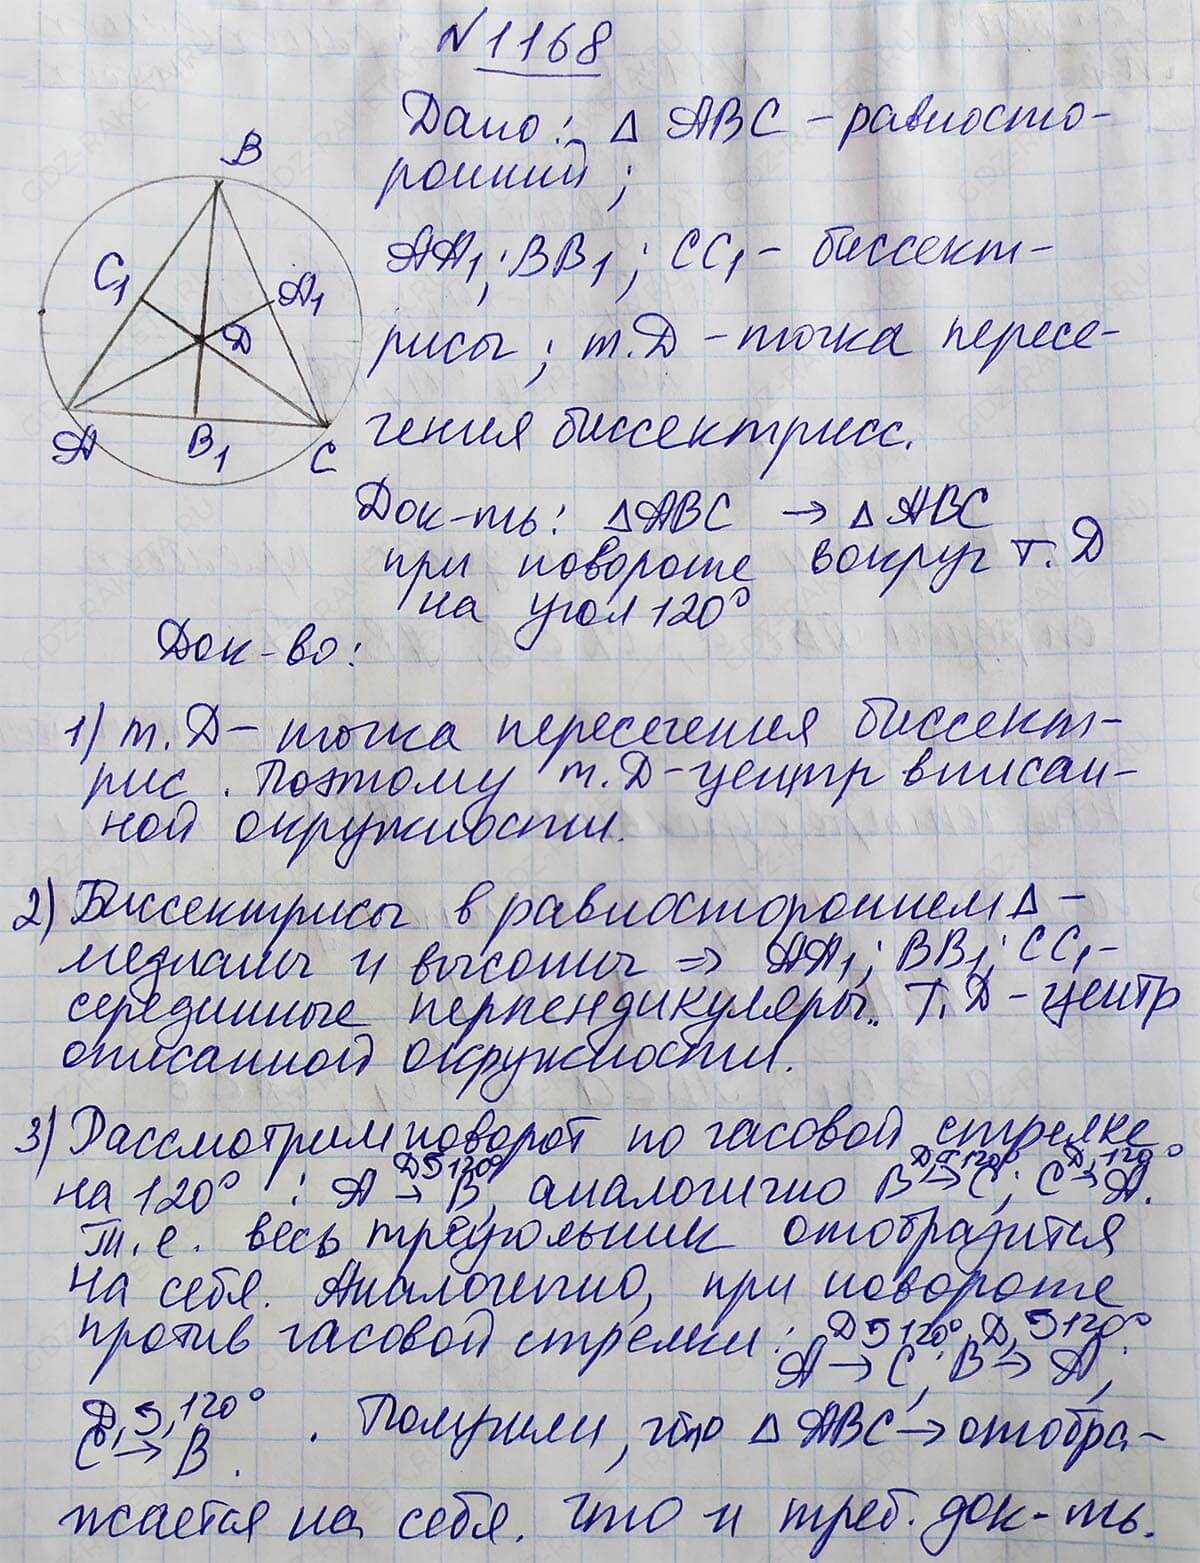 N 1168
Дано: △ ABC – равносто-
ронний;
B
C₁
A₁
D
A
B₁
C
AA₁; BB₁; CC₁ – биссект-
рисы; т. D – точка пересе-
чения биссектрисс.
Док-ть: △ABC → △ABC
при повороте вокруг т. D
на угол 120°
Док-во:
1) т. D – точка пересечения биссект-
рис. Поэтому т. D – центр вписан-
ной окружности.
2) Биссектрисы в равностороннем △ –
медианы и высоты ⇒ AA₁; BB₁; CC₁ –
серединные перпендикуляры. Т. D – центр
описанной окружности.
3) Рассмотрим поворот по часовой стрелке
D 120° D 120° D, 120°
на 120° : A → B, аналогично B → C; C → A.
Т.е. весь треугольник отобразится
на себя. Аналогично, при повороте
против часовой стрелки: D 120° D, 120°
A → C; B → A,
D, 120°
C → B. Получили, что △ ABC → отобра-
жается на себя. Что и треб. док-ть.